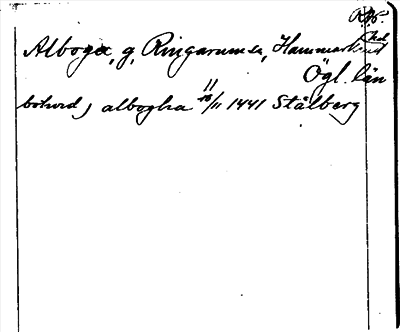 Alboga, g, Ringarums sn, Hammarkinds hd
Ögl. län
bohord) albogha 11/11 1441 Stålberg